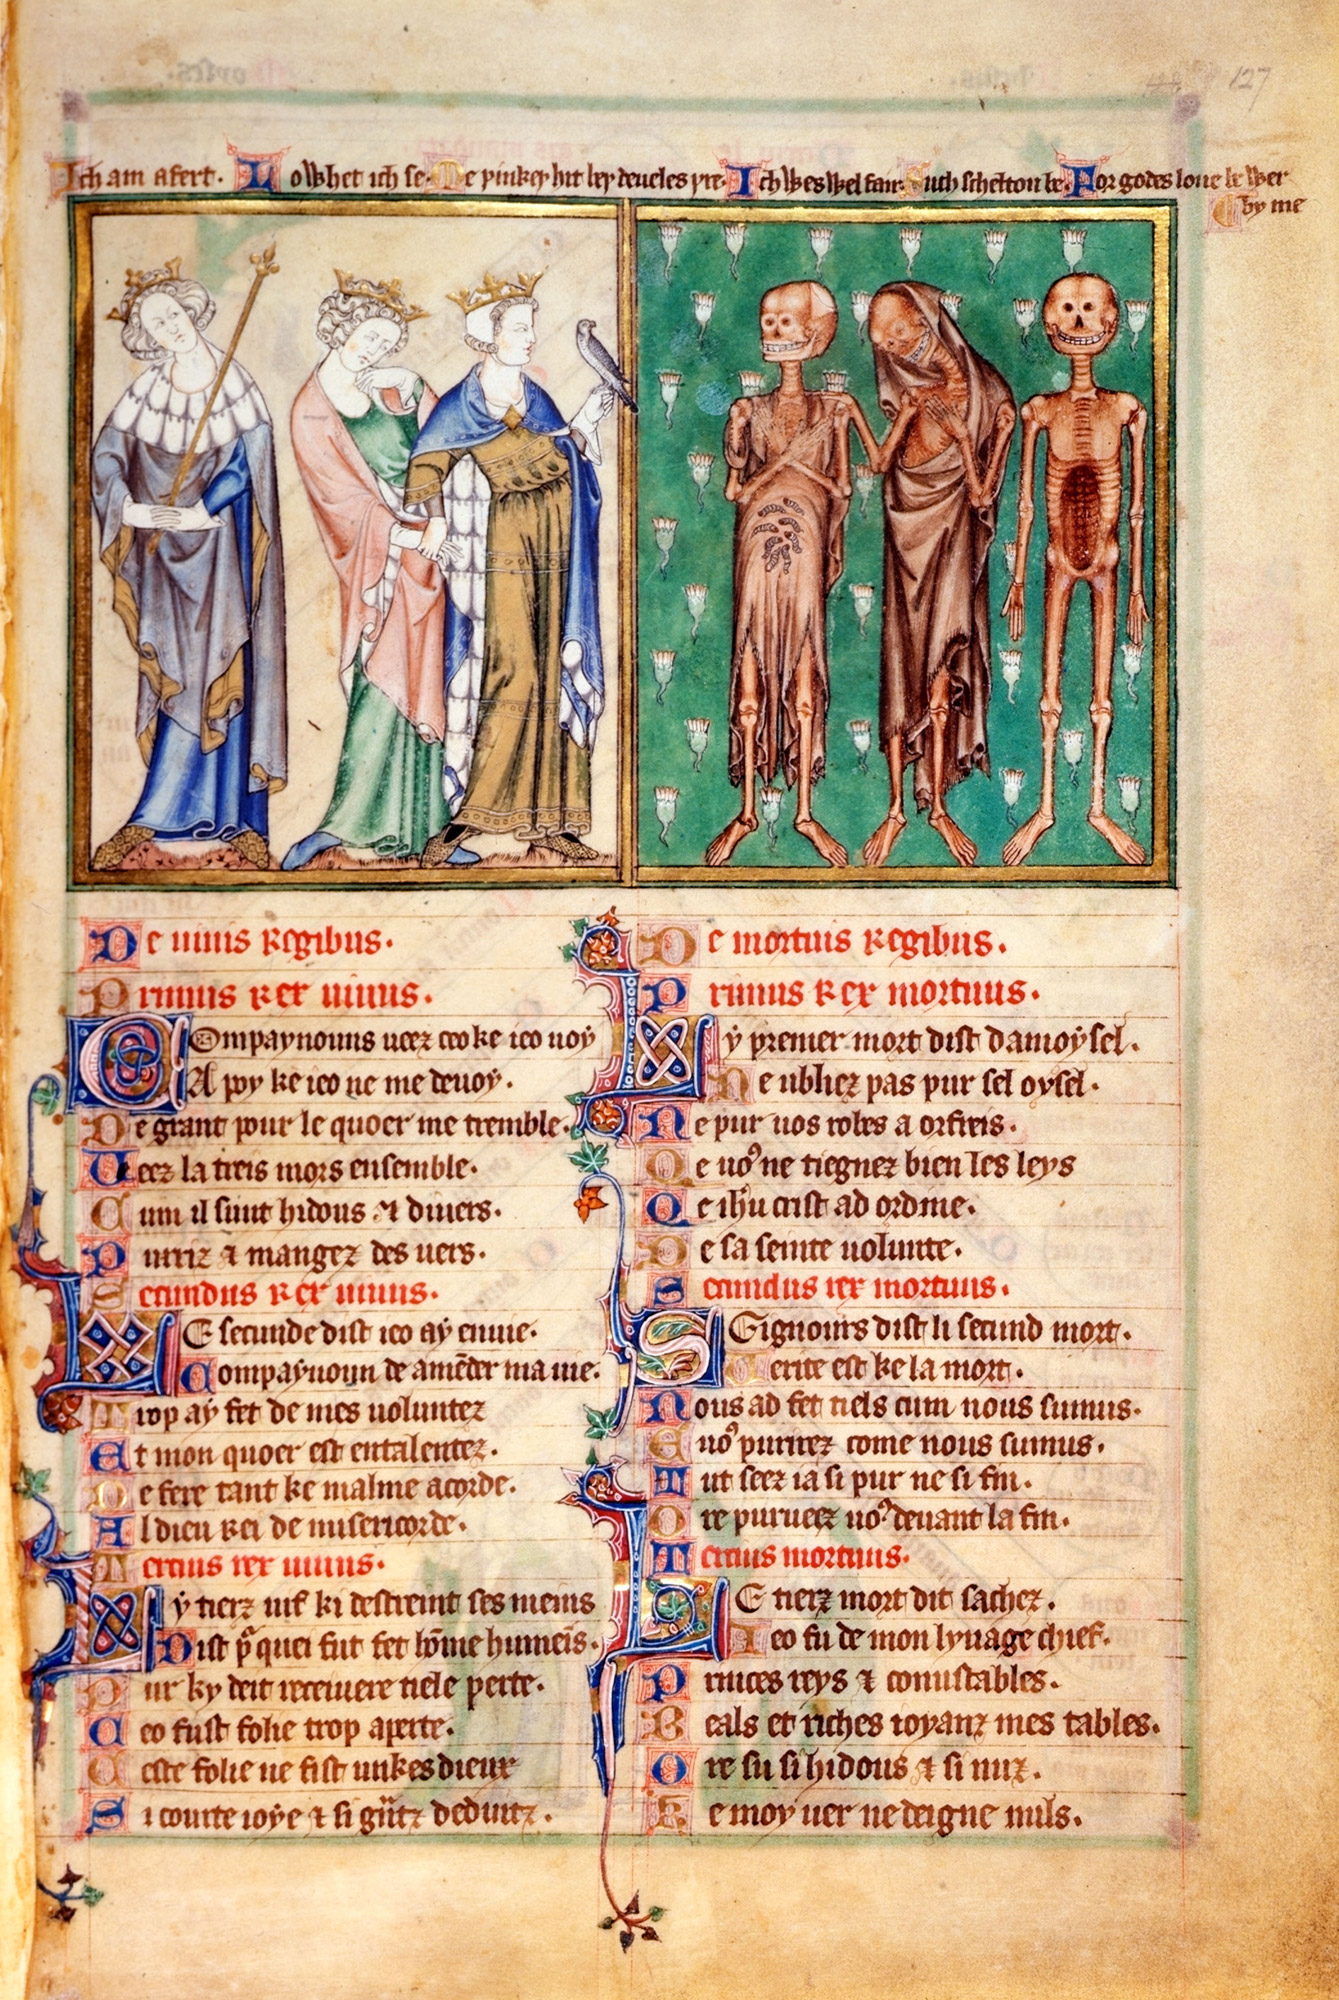 127
Ich am afert. Lo whet ich se. Me þinkeþ hit bey deueles þre. Ich wes wel fair. Such scheltou be. For godes loue be wer
by me
De uiuis regibus.
Primus rex uiuus.
Compaynouns ueez ceo ke ieo uoy
A poy ke ieo ne me deuoy.
De grant pour le quoer me tremble.
Ueez la treis mors ensemble.
Cum il sunt hidous & diuers.
Purriz & mangez des uers.
Secundus rex uiuus.
Le secunde dist ieo ay enuie.
Compaynoun de amēder ma uie.
Trop ay fet de mes uoluntez
Et mon quoer est entalentez.
De fere tant ke malme acorde.
Al dieu rei de misericorde.
Tercius rex uiuus.
Ly tierz uif ki destreint ses meins
Dist pquei fut fet home humeis.
Pur ky deit receiuere tiele perte.
Ceo fust folie trop aperte.
Ceste folie ne fist unkes dieux
Si courte ioye & si gūtz deduitz.
De mortuis regibus.
Primus rex mortuus.
Ly premer mort dist damoysel.
Ne ubliez pas pur sel oysel.
Ne pur uos robes a orfreis.
Qe uoꝰ ne tiegnez bien les leys
Qe ihu crist ad ordine.
De sa seinte uolunte.
Secundus rex mortuus.
Seignours dist li secund mort.
Uerite est ke la mort.
Nous ad fet tiels cum nous sumus.
E uoꝰ purirez come nous sumus.
Tut seez ia si pur ne si fin.
Ore purueez uoꝰ deuant la fin.
Tercius mortuus.
Le tierz mort dit sachez.
Ieo fu de mon lynage chief.
Princes reys & conustables.
Beals et riches ioyanz mes tables.
Ore su si hidous & si nuz.
Ke moy uer ne deigne nuls.